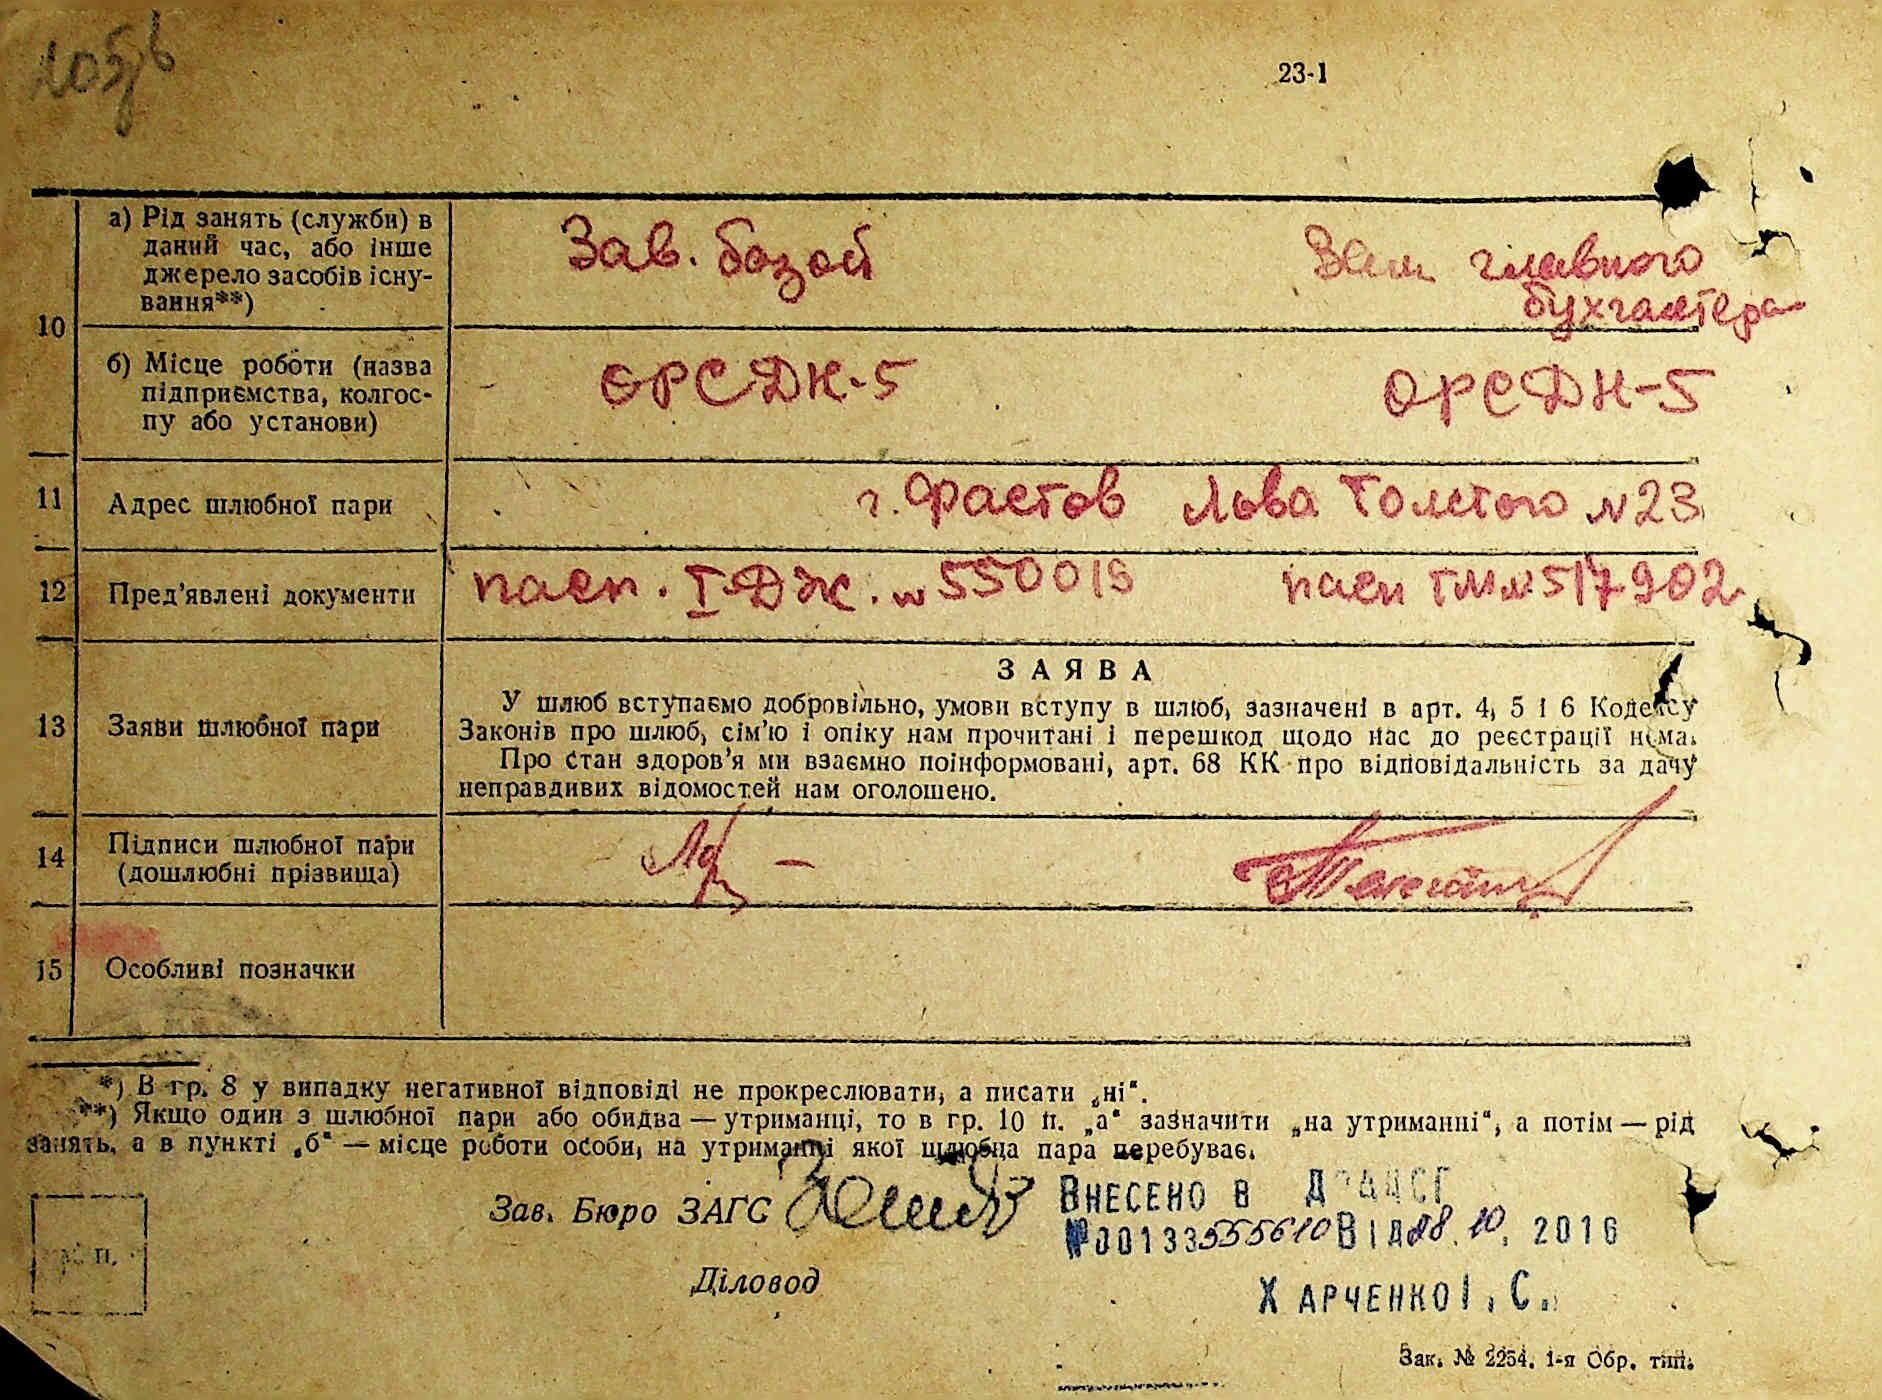 23-1
10
а) Рід занять (служби) в
даний час, або інше
джерело засобів існу-
вання**)
Зав. базой
Зам главного
бухгалтера
б) Місце роботи (назва
підприємства, колгос-
пу або установи)
ОРС ДН-5
ОРС ДН-5
11 Адрес шлюбної пари
г. Фастов Льва Толстого №23
12 Пред'явлені документи
пасп. I-ДЖ. № 550019 пасп ТМ № 517902
13 Заяви шлюбної пари
ЗАЯВА
У шлюб вступаємо добровільно, умови вступу в шлюб, зазначені в арт. 4, 5 і 6 Кодексу
Законів про шлюб, сім'ю і опіку нам прочитані і перешкод щодо нас до реєстрації нема.
Про стан здоров'я ми взаємно поінформовані, арт. 68 КК про відповідальність за дачу
неправдивих відомостей нам оголошено.
14 Підписи шлюбної пари
(дошлюбні прізвища)
15 Особливі позначки
*) В гр. 8 у випадку негативної відповіді не прокреслювати, а писати „ні“.
**) Якщо один з шлюбної пари або обидва — утриманці, то в гр. 10 п. „а“ зазначити „на утриманні“, а потім — рід
занять, а в пункті „б“ — місце роботи особи, на утриманні якої шлюбна пара перебуває.
Зав. Бюро ЗАГС
ВНЕСЕНО В ДРАЦСГ
№00133555610 ВІД 28.10.2016
Діловод
ХАРЧЕНКО І. С.
Зак. № 2254. 1-я Обр. тип.